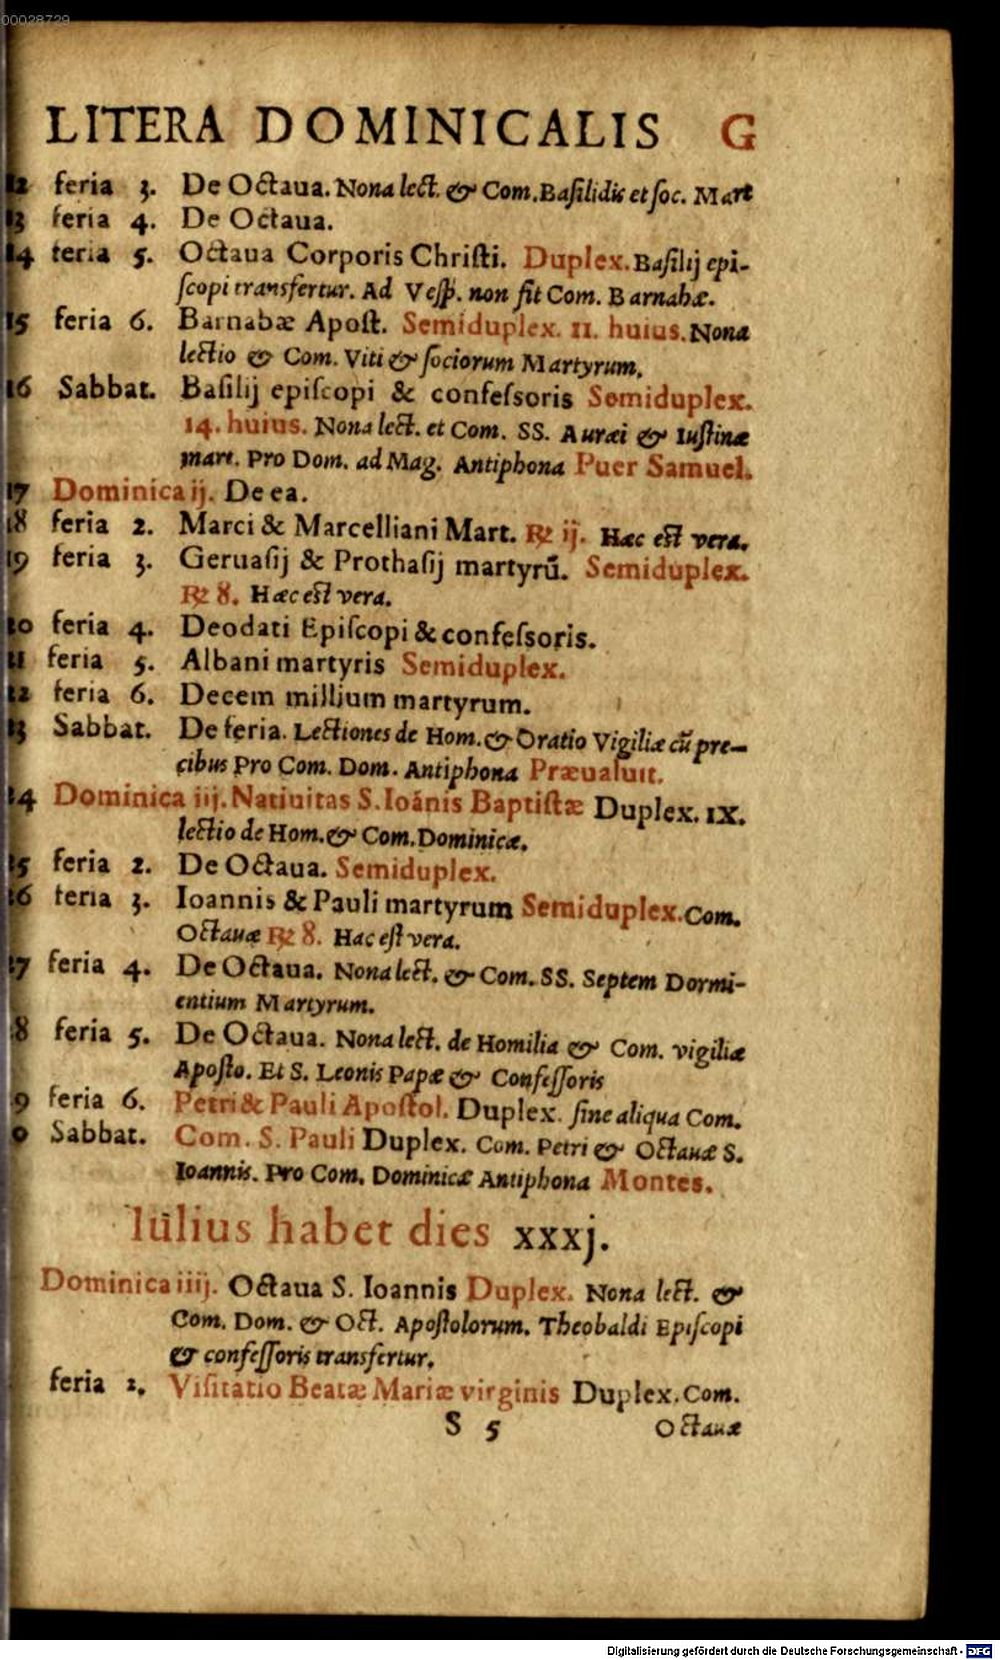 00028729
LITERA DOMINICALIS G
12 feria 3. De Octaua. Nona lect. & Com. Basilidis et soc. Mart
13 feria 4. De Octaua.
14 feria 5. Octaua Corporis Chriſti. Duplex. Baſilij epi-
ſcopi transfertur. Ad Veſp. non fit Com. Barnabæ.
15 feria 6. Barnabæ Apoſt. Semiduplex. 11. huius. Nona
lectio & Com. Viti & ſociorum Martyrum.
16 Sabbat. Baſilij epiſcopi & confeſsoris Semiduplex.
14. huius. Nona lect. et Com. SS. Auræi & Iuſtinæ
mart. Pro Dom. ad Mag. Antiphona Puer Samuel.
17 Dominica ij. De ea.
18 feria 2. Marci & Marcelliani Mart. ℞ ij. Hæc eſt vera.
19 feria 3. Geruaſij & Prothaſij martyrū. Semiduplex.
℞ 8. Hæc eſt vera.
20 feria 4. Deodati Epiſcopi & confeſsoris.
21 feria 5. Albani martyris Semiduplex.
22 feria 6. Decem millium martyrum.
23 Sabbat. De feria. Lectiones de Hom. & Oratio Vigiliæ cū pre-
cibus Pro Com. Dom. Antiphona Præualuit.
24 Dominica iij. Natiuitas S. Ioānis Baptiſtæ Duplex. IX.
lectio de Hom. & Com. Dominicæ.
25 feria 2. De Octaua. Semiduplex.
26 feria 3. Ioannis & Pauli martyrum Semiduplex. Com.
Octauæ ℞ 8. Hæc eſt vera.
27 feria 4. De Octaua. Nona lect. & Com. SS. Septem Dormi-
entium Martyrum.
8 feria 5. De Octaua. Nona lect. de Homilia & Com. vigiliæ
Apoſto. Et S. Leonis Papæ & Confeſſoris
9 feria 6. Petri & Pauli Apoſtol. Duplex. ſine aliqua Com.
0 Sabbat. Com. S. Pauli Duplex. Com. Petri & Octauæ S.
Ioannis. Pro Com. Dominicæ Antiphona Montes.
Iulius habet dies xxxj.
Dominica iiij. Octaua S. Ioannis Duplex. Nona lect. &
Com. Dom. & Oct. Apoſtolorum. Theobaldi Epiſcopi
& confeſſoris transfertur.
feria 2. Viſitatio Beatæ Mariæ virginis Duplex. Com.
S 5 Octauæ
Digitalisierung gefördert durch die Deutsche Forschungsgemeinschaft - DFG